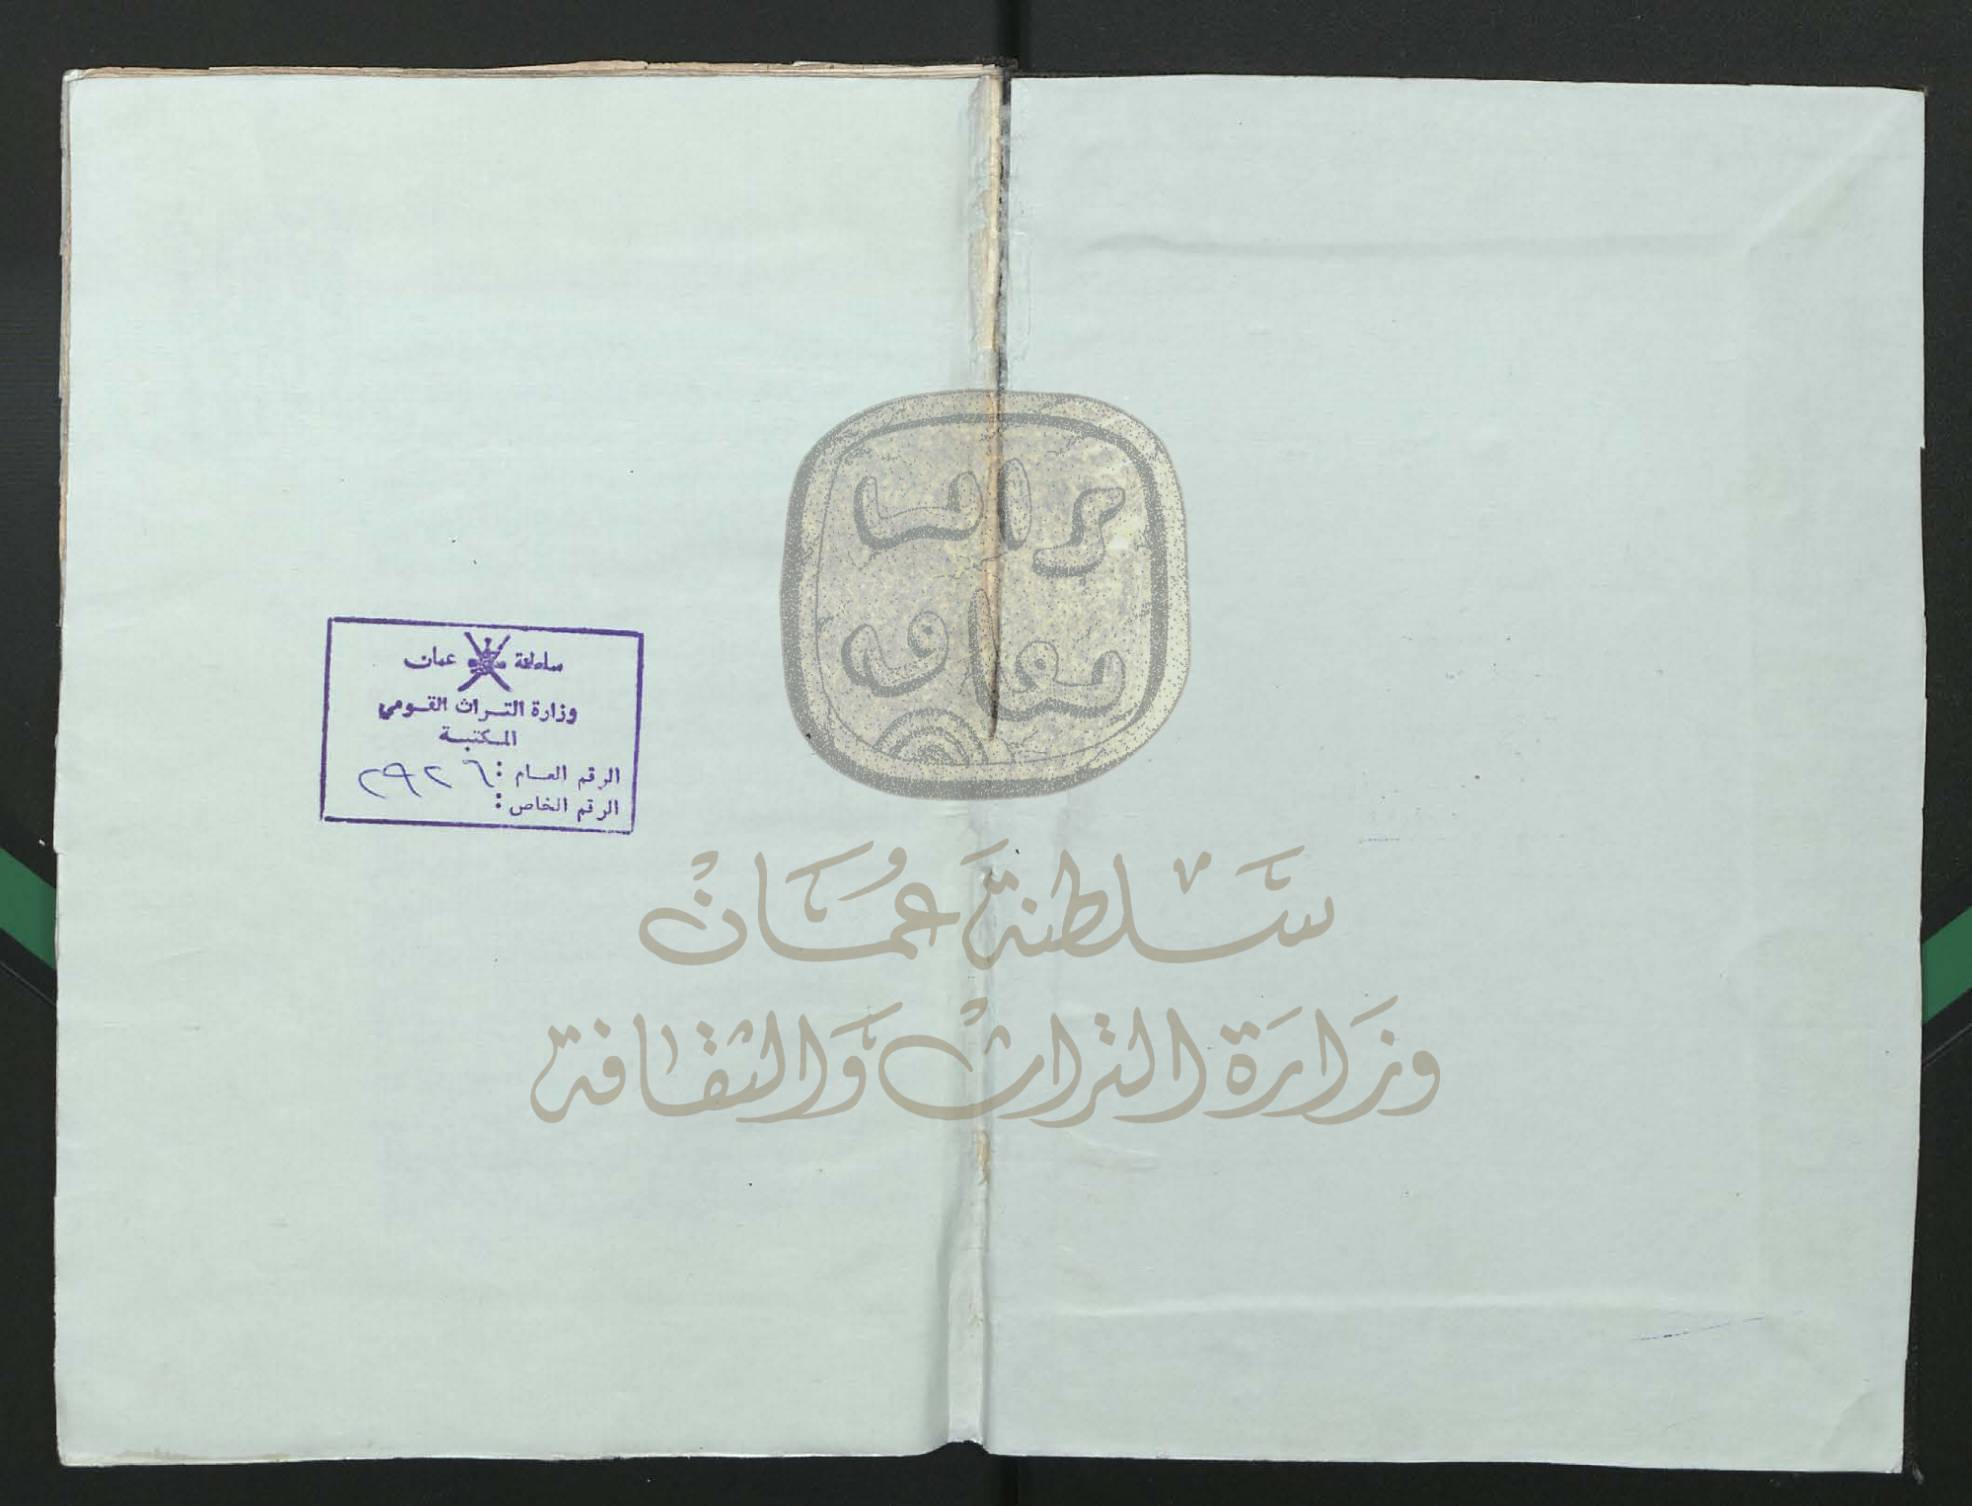 سلطنة عمان
وزارة التراث القومي
المكتبة
الرقم العام : ٢٩٢٦
الرقم الخاص :
سَلطنة عُمَان
وَزارَة التراث وَالثقافة